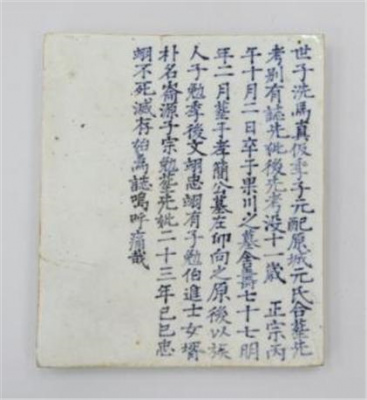 世子洗馬眞伋季子元配原城元氏合葬先
考別有誌先妣後先考没十一歲 正宗丙
午十月二日卒于果川之墓舍壽七十七明
年二月葬于孝簡公墓左卯向之原後以族
人子勉季後文翊忠翊有子勉伯進士女壻
朴名源子宗勉葬先妣二十三年己巳忠
翊不死滅存始爲誌嗚呼痛哉